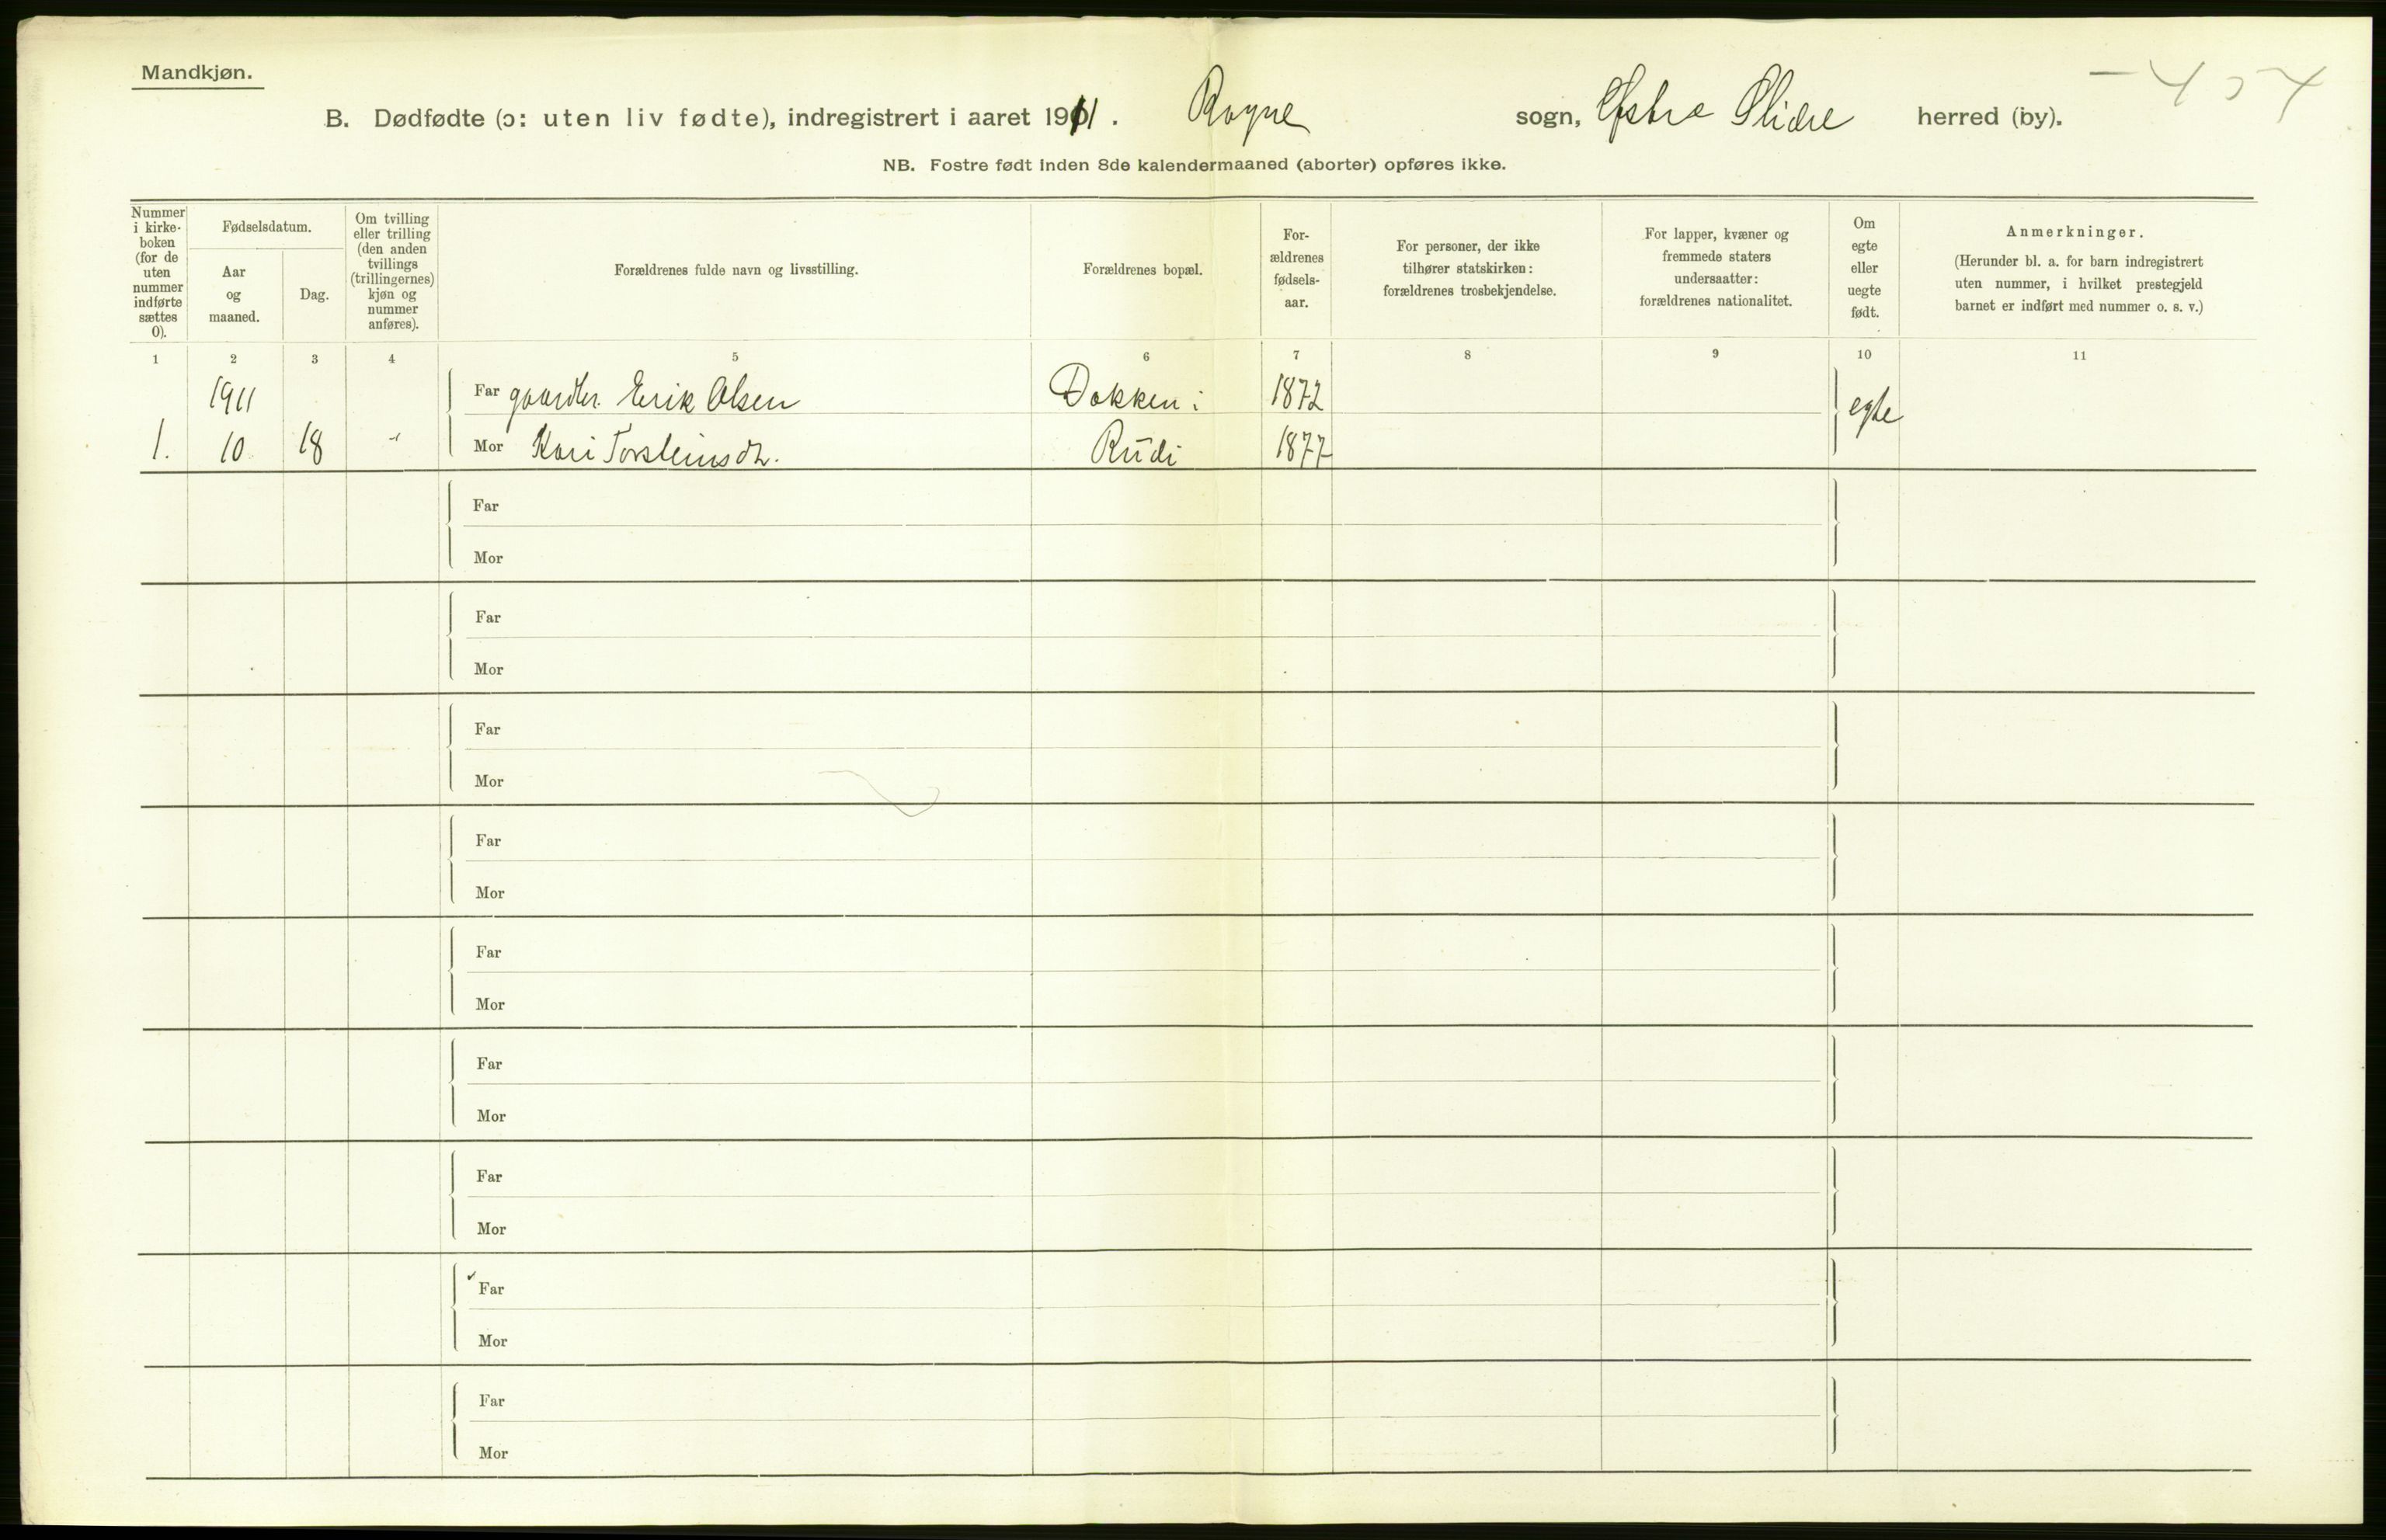 Mandkjøn.
B. Dødfødte (ɔ: uten liv fødte), indregistrert i aaret 1911. Rogne sogn, Østre Slidre herred (by).
NB. Fostre født inden 8de kalendermaaned (aborter) opføres ikke.
Nummer i kirke-boken (for de uten nummer indførte sættes 0).
Fødselsdatum.
Aar og maaned.
Dag.
Om tvilling eller trilling (den anden tvillings (trillingernes) kjøn og nummer anføres).
Forældrenes fulde navn og livsstilling.
Forældrenes bopæl.
For-ældrenes fødsels-aar.
For personer, der ikke tilhører statskirken: forældrenes trosbekjendelse.
For lapper, kvæner og fremmede staters undersaatter: forældrenes nationalitet.
Om egte eller uegte født.
Anmerkninger.
(Herunder bl. a. for barn indregistrert uten nummer, i hvilket prestegjeld barnet er indført med nummer o. s. v.)
1 2 3 4 5 6 7 8 9 10 11
1911 Far gaardbr. Erik Olsen Dokken i 1872 egte
1. 10 18 Mor Kari Torsteinsdtr. Rudi 1877
Far
Mor
Far
Mor
Far
Mor
Far
Mor
Far
Mor
Far
Mor
Far
Mor
Far
Mor
Far
Mor